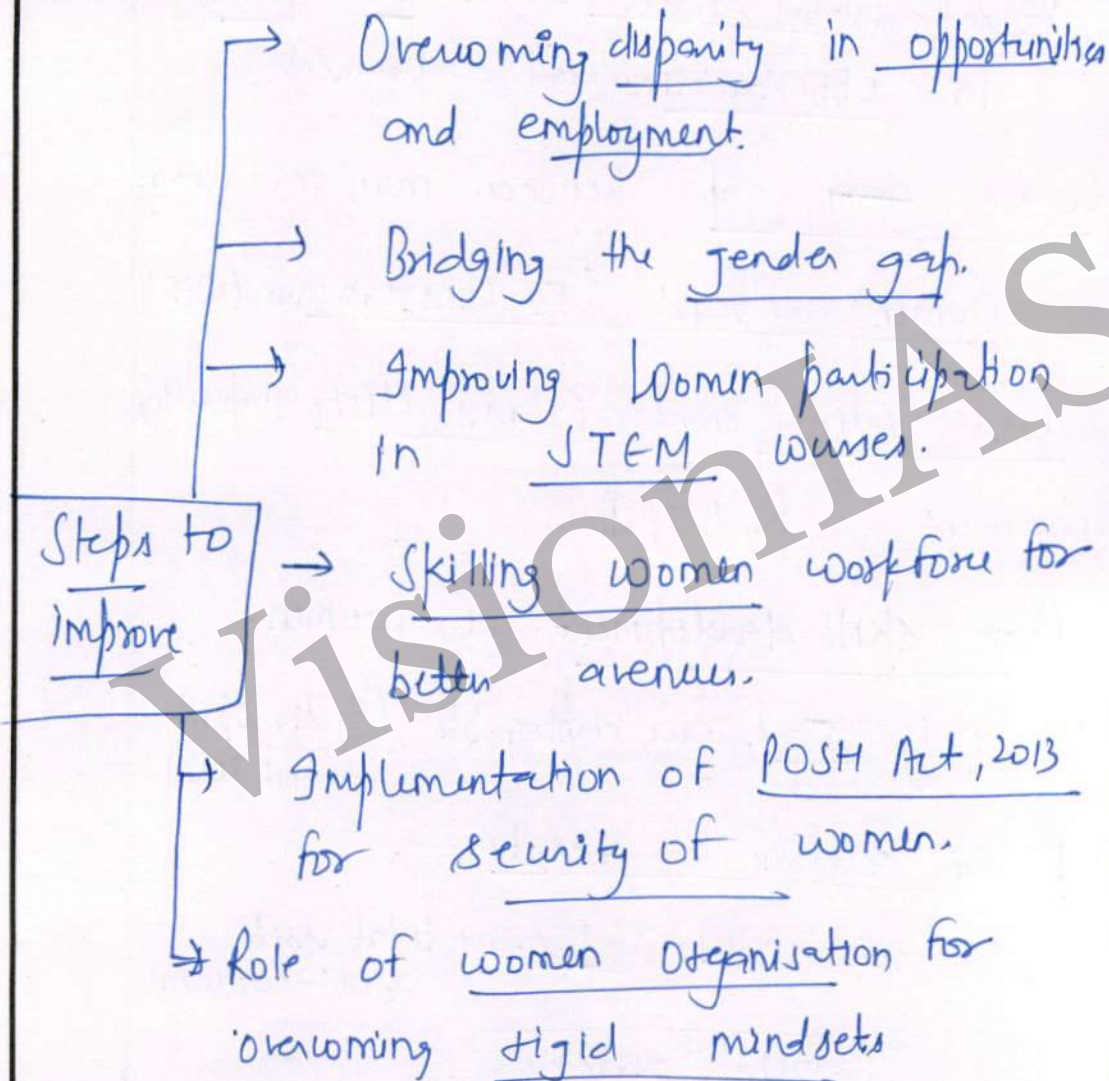 Overcoming disparity in opportunities
and employment.
Bridging the gender gap.
Improving Women participation
in STEM courses.
Steps to
improve
Skilling women workforce for
better avenues.
Implementation of POSH Act, 2013
for security of women.
Role of women Organisation for
overcoming rigid mindsets
VisionIAS